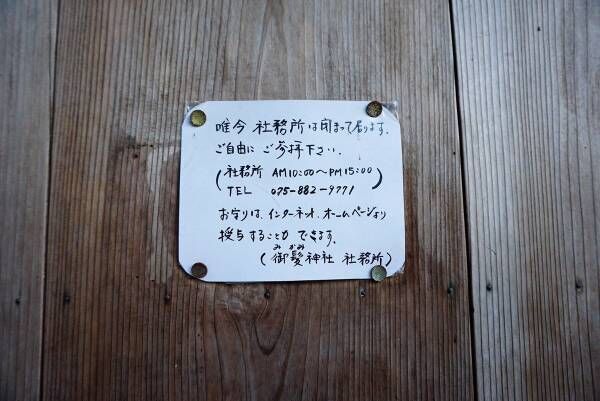 唯今 社務所は閉まって居ります.
ご自由に ご参拝下さい.
(社務所 AM10:00〜PM15:00
TEL 075-882-9771)
お守りは、インターネット、ホームページより
授与することができます。
みかみ
(御髪神社 社務所)